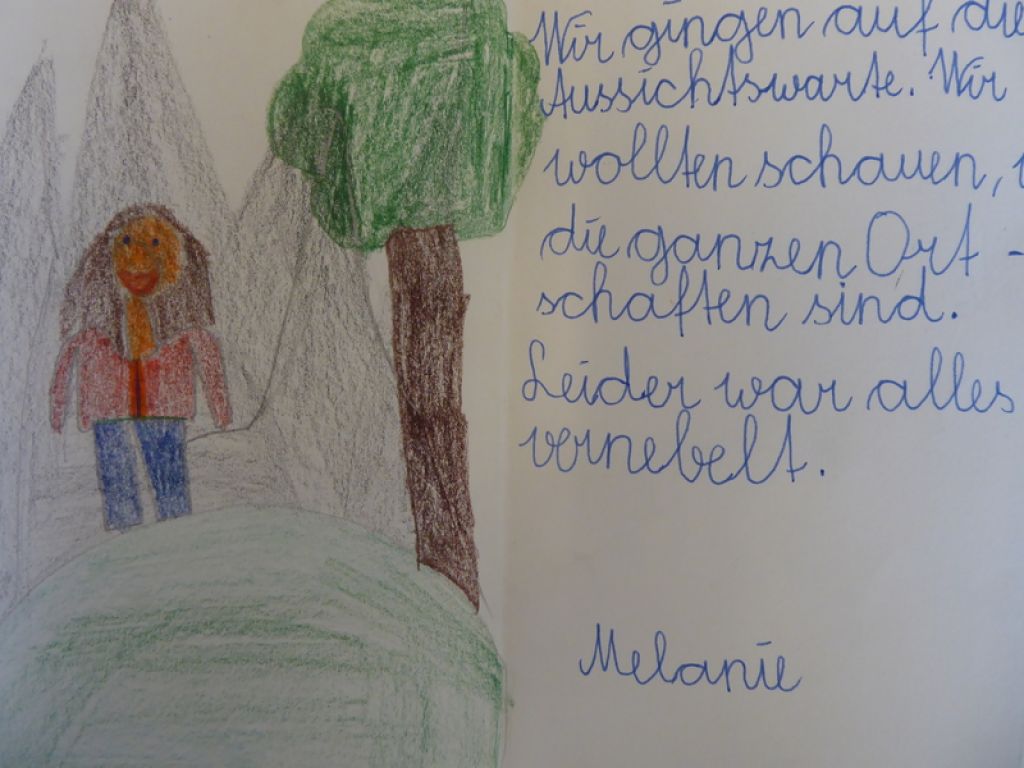 Wir gingen auf die
Aussichtswarte. Wir
wollten schauen,
die ganzen Ort-
schaften sind.
Leider war alles
vernebelt.
Melanie